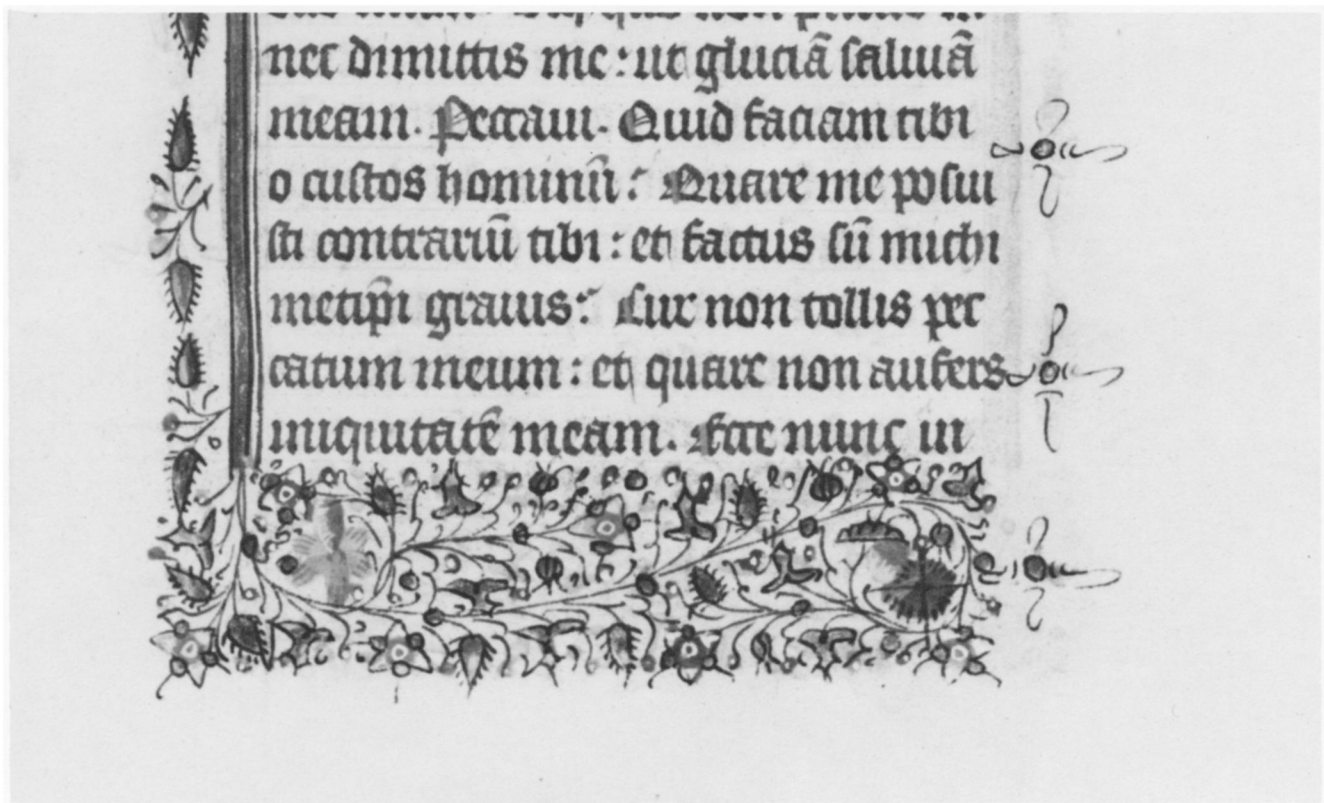 nec dimittis me : ut gluciā saliuā
meam. Peccaui. Quid faciam tibi
o custos hominū : Quare me posui
sti contrariū tibi : et factus sū michi
metip̄i grauis : Cur non tollis pec
catum meum : et quare non aufers
iniquitatē meam. Ecce nunc in